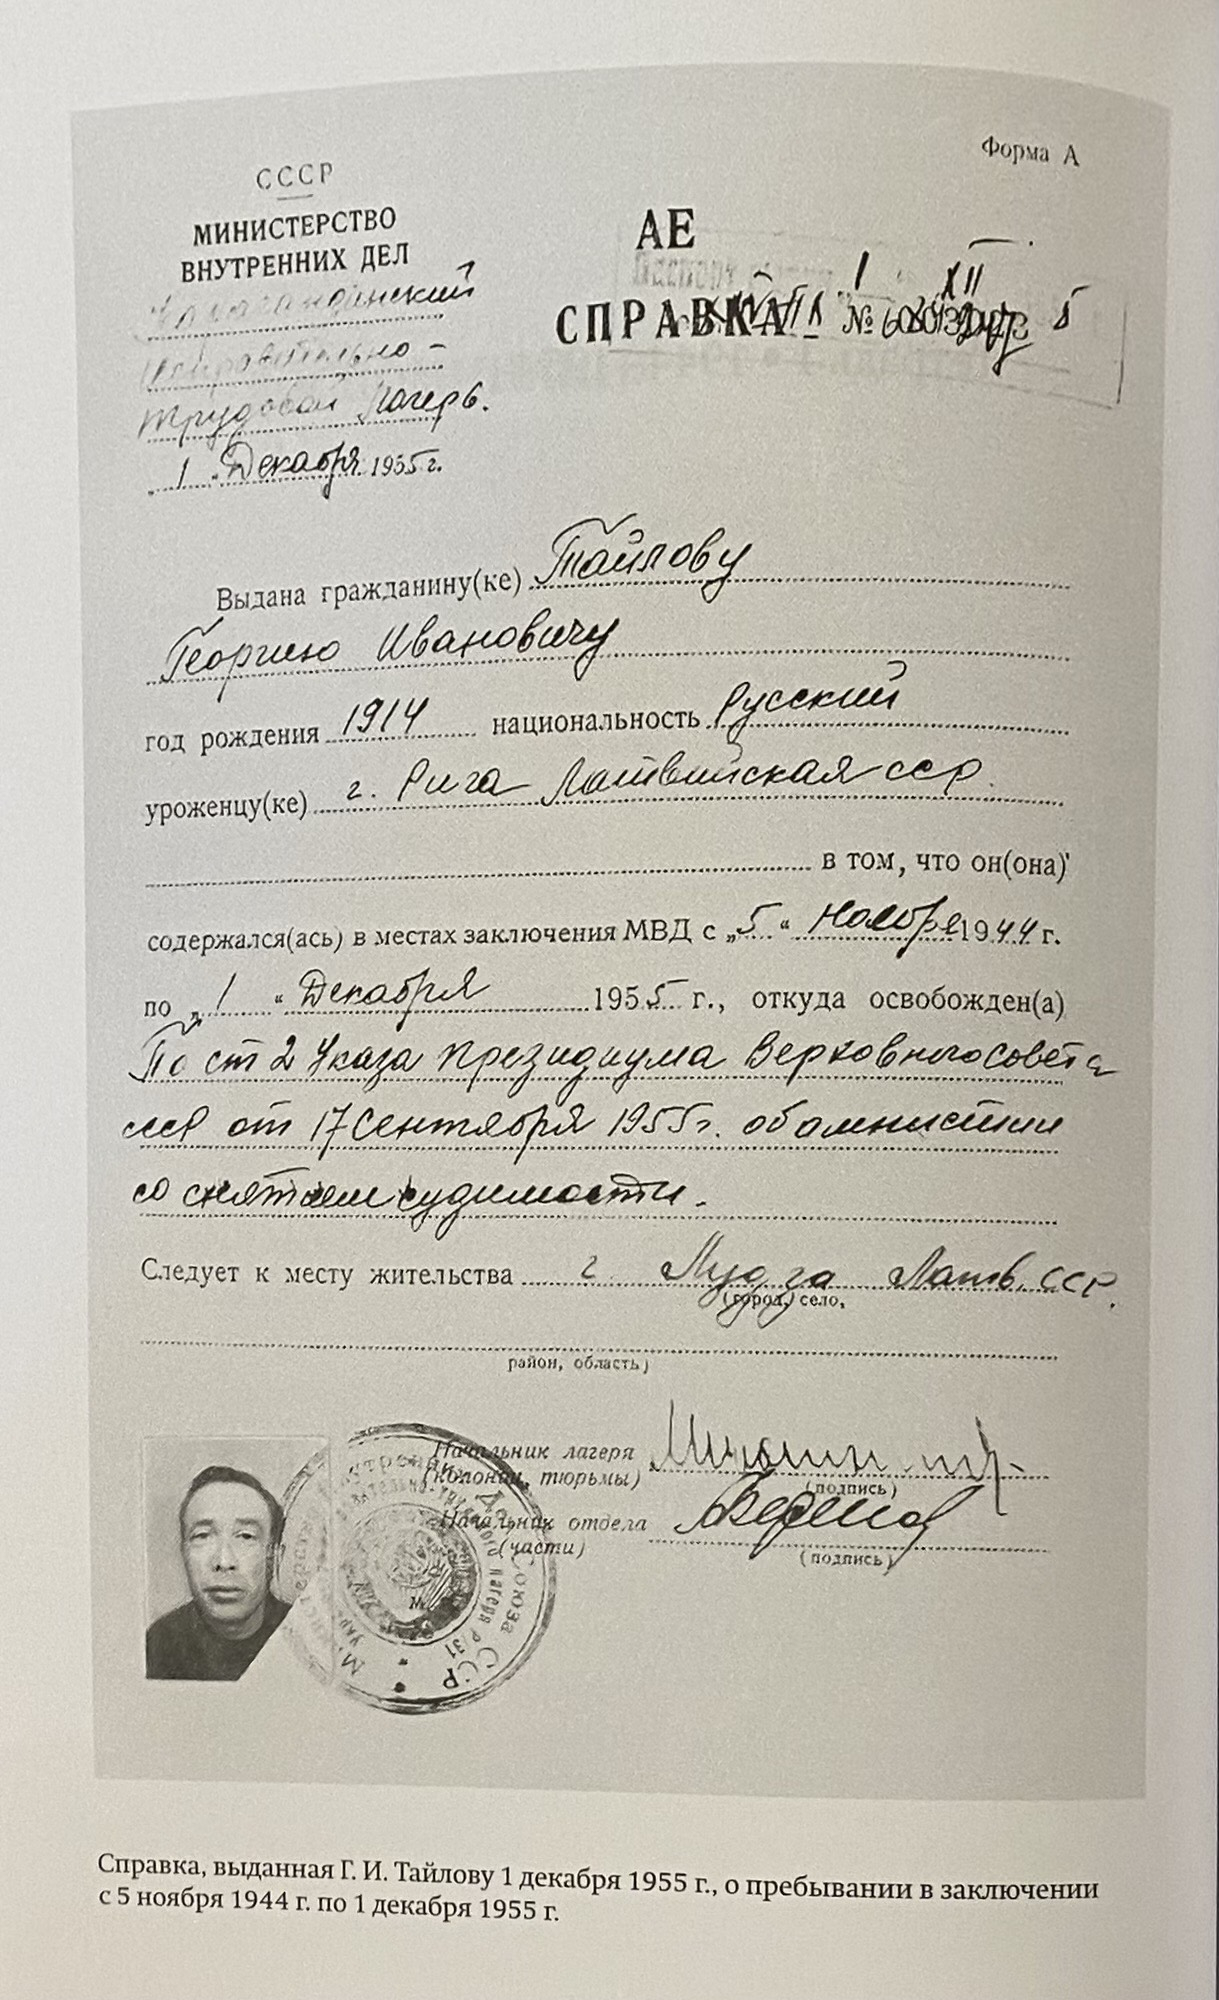 Форма А
СССР
МИНИСТЕРСТВО
ВНУТРЕННИХ ДЕЛ
Карагандинский
исправительно-
трудовой лагерь.
„1„ Декабря 1955 г.
АЕ
СПРАВКА
№
Выдана гражданину(ке) Тайлову
Георгию Ивановичу
год рождения 1914 национальность Русский
уроженцу(ке) г. Рига Латвийская сср.
в том, что он(она)
содержался(ась) в местах заключения МВД с „5“ Ноября 1944 г.
по „1“ Декабря 1955 г., откуда освобожден(а)
По ст 2 Указа Президиума Верховного совета
ссср от 17 Сентября 1955 г. об амнистии
со снятием судимости.
Следует к месту жительства г Лудза Латв. ССР.
(город, село,
район, область)
Начальник лагеря
(колонии, тюрьмы)
(подпись)
Начальник отдела
(части)
(подпись)
Справка, выданная Г. И. Тайлову 1 декабря 1955 г., о пребывании в заключении
с 5 ноября 1944 г. по 1 декабря 1955 г.